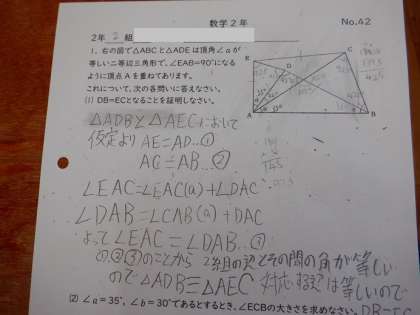 数学2年
No.42
2年 2 組
1. 右の図で△ABCと△ADEは頂角∠aが
等しい二等辺三角形で、∠EAB=90°になる
ように頂点Aを重ねてあります。
これについて、次の各問いに答えなさい。
(1) DB=ECとなることを証明しなさい。
E
D
C
A
B
△ADBと△AECにおいて
仮定より AE=AD…①
AC=AB…②
∠EAC=∠EAC(a)+∠DAC
∠DAB=∠CAB(a)+DAC
よって∠EAC=∠DAB…③
①,②,③のことから 2組の辺とその間の角が等しい
ので△ADB≡△AEC 対応する辺は等しいので
(2) ∠a=35°, ∠b=30°であるとするとき、∠ECBの大きさを求めなさい。